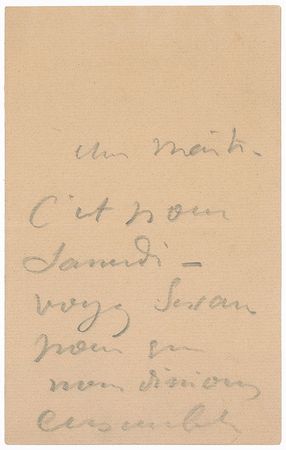 Mon Maître.
C'est pour
Samedi –
voyez
pour que
nous dinions
ensemble